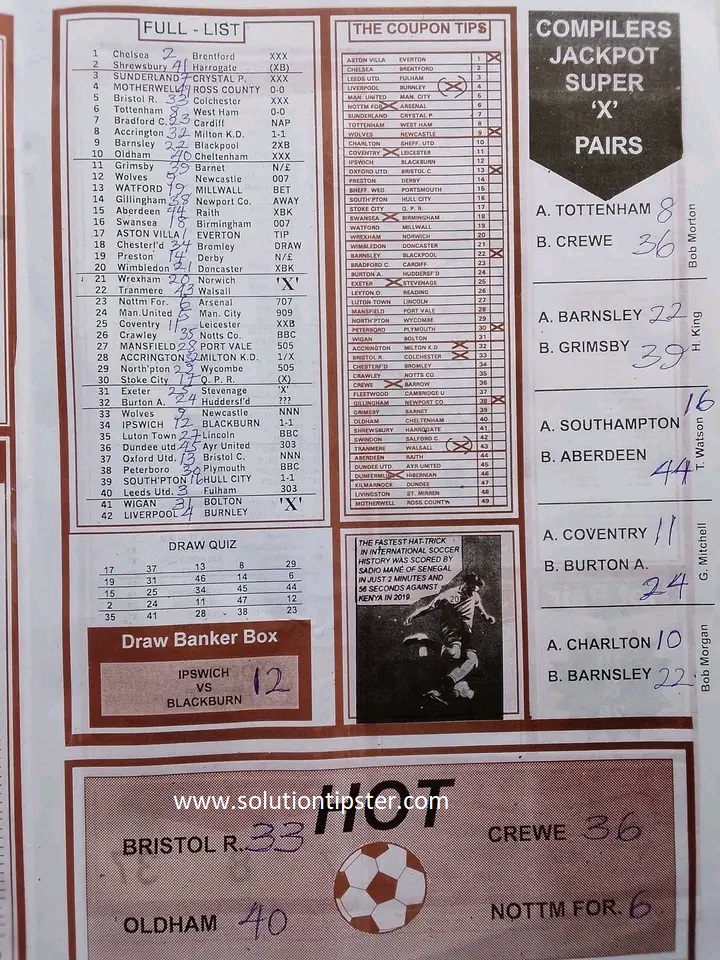 FULL - LIST
1 Chelsea 2 Brentford XXX
2 Shrewsbury 41 Harrogate (XB)
3 SUNDERLAND 7 CRYSTAL P. XXX
4 MOTHERWELL 49 ROSS COUNTY 0-0
5 Bristol R. 33 Colchester XXX
6 Tottenham 8 West Ham 0-0
7 Bradford C. 23 Cardiff NAP
8 Accrington 32 Milton K.D. 1-1
9 Barnsley 22 Blackpool 2XB
10 Oldham 40 Cheltenham XXX
11 Grimsby 39 Barnet N/£
12 Wolves 9 Newcastle 007
13 WATFORD 19 MILLWALL BET
14 Gillingham 38 Newport Co. AWAY
15 Aberdeen 44 Raith XBK
16 Swansea 18 Birmingham 007
17 ASTON VILLA 1 EVERTON TIP
18 Chesterf'd 34 Bromley DRAW
19 Preston 14 Derby N/£
20 Wimbledon 21 Doncaster XBK
21 Wrexham 20 Norwich
22 Tranmere 43 Walsall 'X'
23 Nottm For. 6 Arsenal 707
24 Man.United 5 Man. City 909
25 Coventry 11 Leicester XXB
26 Crawley 35 Notts Co. BBC
27 MANSFIELD 28 PORT VALE 505
28 ACCRINGTON 32 MILTON K.D. 1/X
29 North'pton 29 Wycombe 505
30 Stoke City 17 Q. P. R. (X)
31 Exeter 25 Stevenage 'X'
32 Burton A. 24 Hudders'd ???
33 Wolves 9 Newcastle NNN
34 IPSWICH 12 BLACKBURN 1-1
35 Luton Town 27 Lincoln BBC
36 Dundee utd. 45 Ayr United 303
37 Oxford Utd. 13 Bristol C. NNN
38 Peterboro 30 Plymouth BBC
39 SOUTH'PTON 16 HULL CITY 1-1
40 Leeds Utd. 3 Fulham 303
41 WIGAN 31 BOLTON
42 LIVERPOOL 4 BURNLEY 'X'
DRAW QUIZ
17 37 13 8 29
19 31 46 14 6
15 25 34 45 44
2 24 11 47 12
35 41 28 38 23
Draw Banker Box
IPSWICH
VS 12
BLACKBURN
THE COUPON TIPS
ASTON VILLA EVERTON 1 X
CHELSEA BRENTFORD 2
LEEDS UTD. FULHAM 3
LIVERPOOL BURNLEY (X) 4
MAN. UNITED MAN. CITY 5
NOTTM FOR X ARSENAL 6
SUNDERLAND CRYSTAL P. 7
TOTTENHAM WEST HAM 8
WOLVES NEWCASTLE 9 X
CHARLTON SHEFF. UTD 10
COVENTRY X LEICESTER 11
IPSWICH BLACKBURN 12
OXFORD UTD BRISTOL C. 13 X
PRESTON DERBY 14
SHEFF. WED. PORTSMOUTH 15
SOUTH'PTON HULL CITY 16
STOKE CITY Q. P. R. 17
SWANSEA X BIRMINGHAM 18
WATFORD MILLWALL 19
WREXHAM NORWICH 20
WIMBLEDON DONCASTER 21
BARNSLEY BLACKPOOL 22 X
BRADFORD C. CARDIFF 23
BURTON A. HUDDERSF'D 24
EXETER X STEVENAGE 25
LEYTON O. READING 26
LUTON TOWN LINCOLN 27
MANSFIELD PORT VALE 28
NORTH'PTON WYCOMBE 29
PETERBORO PLYMOUTH 30 X
WIGAN BOLTON 31
ACCRINGTON MILTON K.D. X 32
BRISTOL R. COLCHESTER X 33
CHESTERF'D BROMLEY 34
CRAWLEY NOTTS CO. 35
CREWE X BARROW 36
FLEETWOOD CAMBRIDGE U 37
GILLINGHAM NEWPORT CO. 38 X
GRIMSBY BARNET 39
OLDHAM CHELTENHAM 40
SHREWSBURY HARROGATE 41
SWINDON SALFORD C. 42
TRANMERE WALSALL (X) 43
ABERDEEN RAITH 44
DUNDEE UTD. AYR UNITED 45
DUNFERMLIN X HIBERNIAN 46
KILMARNOCK DUNDEE 47
LIVINGSTON ST. MIRREN 48
MOTHERWELL ROSS COUNTY 49
THE FASTEST HAT-TRICK
IN INTERNATIONAL SOCCER
HISTORY WAS SCORED BY
SADIO MANÉ OF SENEGAL
IN JUST 2 MINUTES AND
56 SECONDS AGAINST
KENYA IN 2019
20
COMPILERS
JACKPOT
SUPER
'X'
PAIRS
A. TOTTENHAM 8
B. CREWE 36
Bob Morton
A. BARNSLEY 22
B. GRIMSBY 39
H. King
A. SOUTHAMPTON 16
B. ABERDEEN 44
T. Watson
A. COVENTRY 11
B. BURTON A. 24
G. Mitchell
A. CHARLTON 10
B. BARNSLEY 22
Bob Morgan
www.solutiontipster.com
HOT
BRISTOL R. 33 CREWE 36
OLDHAM 40 NOTTM FOR. 6